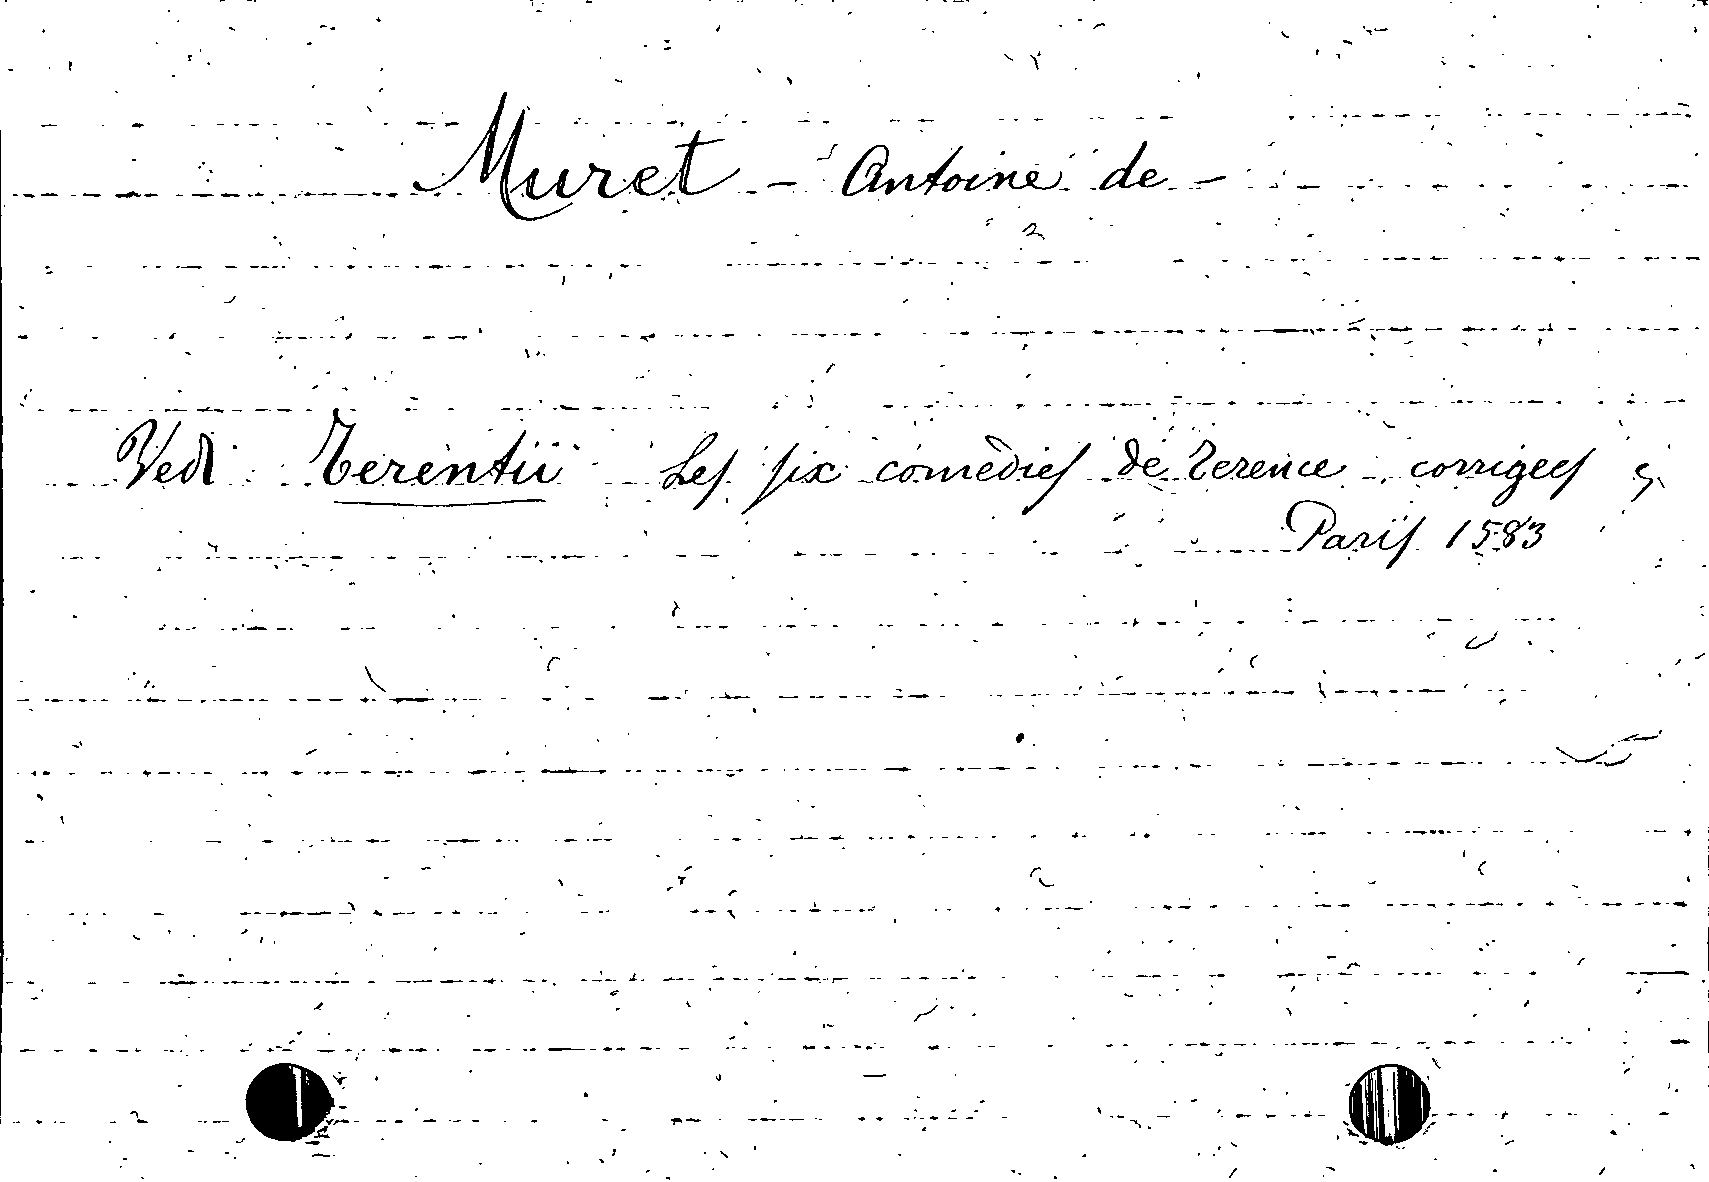 Muret - Antoine de -
Vedi Terentii Les six comedies de Terence corrigees
Paris 1583